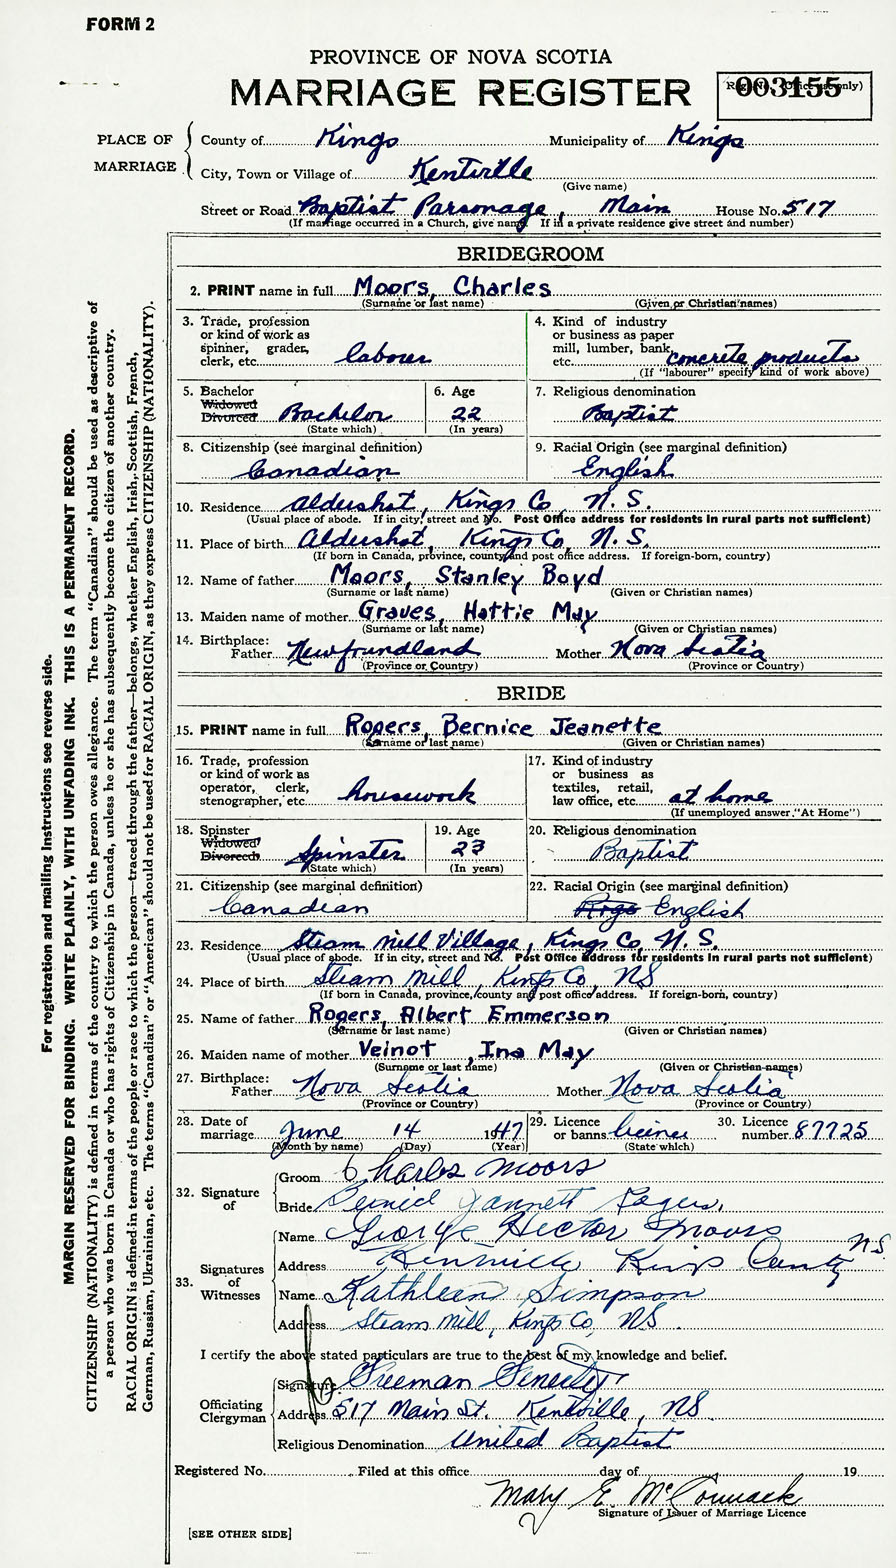 FORM 2
PROVINCE OF NOVA SCOTIA
MARRIAGE REGISTER
Reg. No. (Office use only)
003155
PLACE OF MARRIAGE
County of Kings Municipality of Kings
City, Town or Village of Kentville
(Give name)
Street or Road Baptist Parsonage, Main House No. 517
(If marriage occurred in a Church, give name. If in a private residence give street and number)
BRIDEGROOM
2. PRINT name in full Moors, Charles
(Surname or last name) (Given or Christian names)
3. Trade, profession or kind of work as spinner, grader, clerk, etc. labourer
4. Kind of industry or business as paper mill, lumber, bank, etc. concrete products
(If "labourer" specify kind of work above)
5. Bachelor Widowed Divorced Bachelor
(State which)
6. Age 22
(In years)
7. Religious denomination Baptist
8. Citizenship (see marginal definition) Canadian
9. Racial Origin (see marginal definition) English
10. Residence Aldershot, Kings Co, N. S.
(Usual place of abode. If in city, street and No. Post Office address for residents in rural parts not sufficient)
11. Place of birth Aldershot, Kings Co, N. S.
(If born in Canada, province, county and post office address. If foreign-born, country)
12. Name of father Moors, Stanley Boyd
(Surname or last name) (Given or Christian names)
13. Maiden name of mother Graves, Hattie May
(Surname or last name) (Given or Christian names)
14. Birthplace:
Father Newfoundland Mother Nova Scotia
(Province or Country) (Province or Country)
BRIDE
15. PRINT name in full Rogers, Bernice Jeanette
(Surname or last name) (Given or Christian names)
16. Trade, profession or kind of work as operator, clerk, stenographer, etc. housework
17. Kind of industry or business as textiles, retail, law office, etc. at home
(If unemployed answer "At Home")
18. Spinster Widowed Divorced Spinster
(State which)
19. Age 23
(In years)
20. Religious denomination Baptist
21. Citizenship (see marginal definition) Canadian
22. Racial Origin (see marginal definition) English
23. Residence Steam Mill Village, Kings Co, N. S.
(Usual place of abode. If in city, street and No. Post Office address for residents in rural parts not sufficient)
24. Place of birth Steam Mill, Kings Co, NS
(If born in Canada, province, county and post office address. If foreign-born, country)
25. Name of father Rogers, Albert Emmerson
(Surname or last name) (Given or Christian names)
26. Maiden name of mother Veinot, Ina May
(Surname or last name) (Given or Christian names)
27. Birthplace:
Father Nova Scotia Mother Nova Scotia
(Province or Country) (Province or Country)
28. Date of marriage June 14 1947
(Month by name) (Day) (Year)
29. Licence or banns
(State which)
30. Licence number 87725
32. Signature of
Groom Charles Moors
Bride
33. Signatures of Witnesses
Name George Hector Moors
Address Kentville Kings County NS
Name Kathleen Simpson
Address Steam Mill, Kings Co, NS.
I certify the above stated particulars are true to the best of my knowledge and belief.
Officiating Clergyman
Signature Freeman
Address 517 Main St. Kentville, NS.
Religious Denomination United Baptist
Registered No. Filed at this office day of 19
Mary E. McCormack
Signature of Issuer of Marriage Licence
[SEE OTHER SIDE]
For registration and mailing instructions see reverse side.
MARGIN RESERVED FOR BINDING. WRITE PLAINLY, WITH UNFADING INK. THIS IS A PERMANENT RECORD.
CITIZENSHIP (NATIONALITY) is defined in terms of the country to which the person owes allegiance. The term "Canadian" should be used as descriptive of
a person who was born in Canada or who has rights of Citizenship in Canada, unless he or she has subsequently become the citizen of another country.
RACIAL ORIGIN is defined in terms of the people or race to which the person—traced through the father—belongs, whether English, Irish, Scottish, French,
German, Russian, Ukrainian, etc. The terms "Canadian" or "American" should not be used for RACIAL ORIGIN, as they express CITIZENSHIP (NATIONALITY).